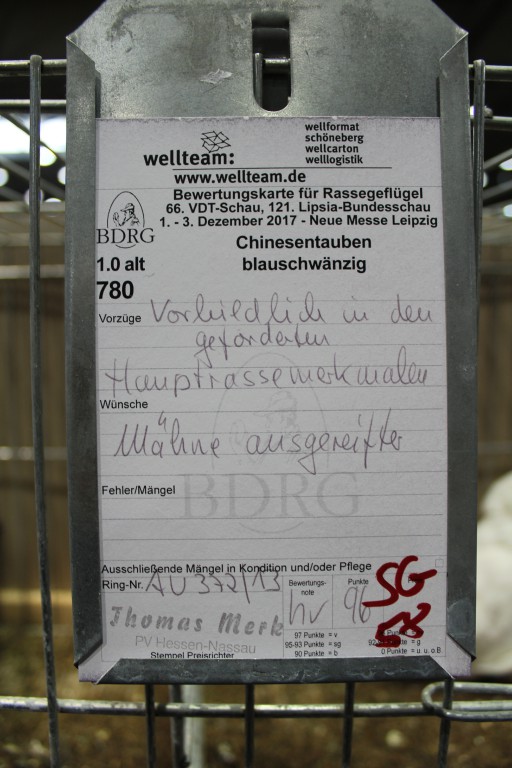 wellteam:
wellformat
schöneberg
wellcarton
welllogistik
www.wellteam.de
Bewertungskarte für Rassegeflügel
66. VDT-Schau, 121. Lipsia-Bundesschau
1. - 3. Dezember 2017 - Neue Messe Leipzig
BDRG
Chinesentauben
1.0 alt
blauschwänzig
780
Vorzüge Vorbildlich in den
geforderten
Hauptrassemerkmalen
Wünsche
Mähne ausgereifter
Fehler/Mängel
BDRG
Ausschließende Mängel in Kondition und/oder Pflege
Ring-Nr. AU 372/13
Bewertungs-
note
hv
Punkte
96
SG
Thomas Merk
PV Hessen-Nassau
Stempel Preisrichter
97 Punkte = v
95-93 Punkte = sg
90 Punkte = b
= g
0 Punkte = u. u. o.B